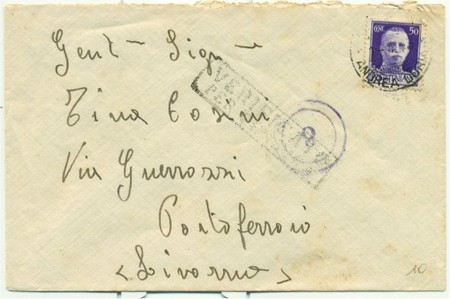 CENT. 50
ANDREA DORIA
Gent Sig.na
VERIFICATO
PER
Tina Cosmi
9
Via Guerrazzi
Portoferraio
(Livorno)
10